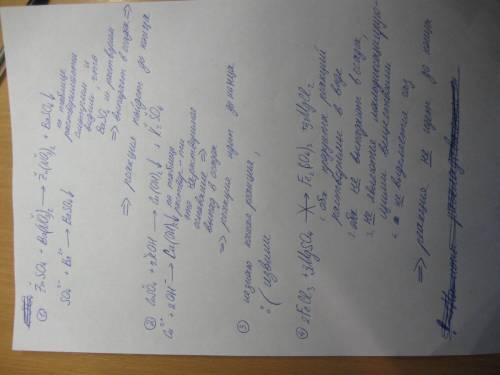 ① ZnSO₄ + Ba(NO₃)₂ ⟶ Zn(NO₃)₂ + BaSO₄↓
SO₄²⁻ + Ba²⁺ ⟶ BaSO₄↓
по таблице
растворимости
видим, что
BaSO₄ не растворим
⇒ выпадает в осадок ⇒
⇒ реакция пойдет до конца
② CuSO₄ + 2KOH ⟶ Cu(OH)₂↓ + K₂SO₄
Cu²⁺ + 2OH⁻ ⟶ Cu(OH)₂↓
по таблице
что нерастворимое
основание ⇒
выпад в осадок
⇒ реакция идет до конца
③ незнаю какая реакция,
(извини
④ 2FeCl₃ + 3MgSO₄ ⟶ Fe₂(SO₄)₃ + 3MgCl₂
1. оба продукта реакций
растворимы в воде
2. оба не выпадают в осадок
3. не являются малодиссоциирую-
щими веществами
4. не выделяется газ
⇒ реакция не идет до конца